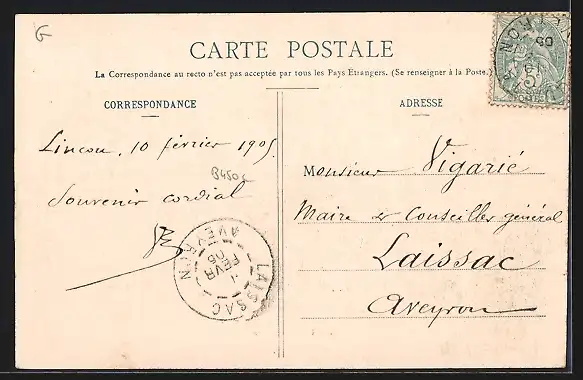 G
CARTE POSTALE
La Correspondance au recto n'est pas acceptée par tous les Pays Étrangers. (Se renseigner à la Poste.)
CORRESPONDANCE
Lincou, 10 février 1905
B450c
Souvenir cordial
LAISSAC
FEVR
05
AVEYRON
ADRESSE
Monsieur Vigarié
Maire & Conseiller général
Laissac
Aveyron